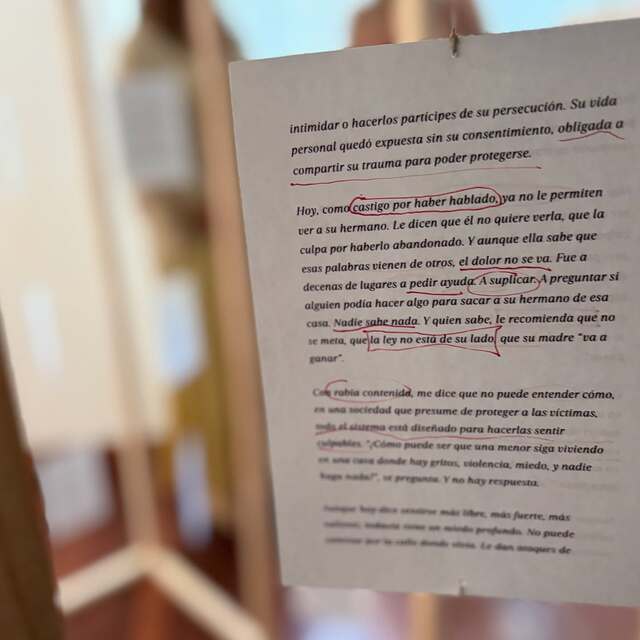 intimidar o hacerlos partícipes de su persecución. Su vida
personal quedó expuesta sin su consentimiento, obligada a
compartir su trauma para poder protegerse.
Hoy, como castigo por haber hablado, ya no le permiten
ver a su hermano. Le dicen que él no quiere verla, que la
culpa por haberlo abandonado. Y aunque ella sabe que
esas palabras vienen de otros, el dolor no se va. Fue a
decenas de lugares a pedir ayuda. A suplicar. A preguntar si
alguien podía hacer algo para sacar a su hermano de esa
casa. Nadie sabe nada. Y quien sabe, le recomienda que no
se meta, que la ley no está de su lado, que su madre "va a
ganar".
Con rabia contenida, me dice que no puede entender cómo,
en una sociedad que presume de proteger a las víctimas,
todo el sistema está diseñado para hacerlas sentir
culpables. "¿Cómo puede ser que una menor siga viviendo
en una casa donde hay gritos, violencia, miedo, y nadie
haga nada?", se pregunta. Y no hay respuesta.
Aunque hoy dice sentirse más libre, más fuerte, más
valiente, todavía tiene un miedo profundo. No puede
caminar por la calle donde vivía. Le dan ataques de